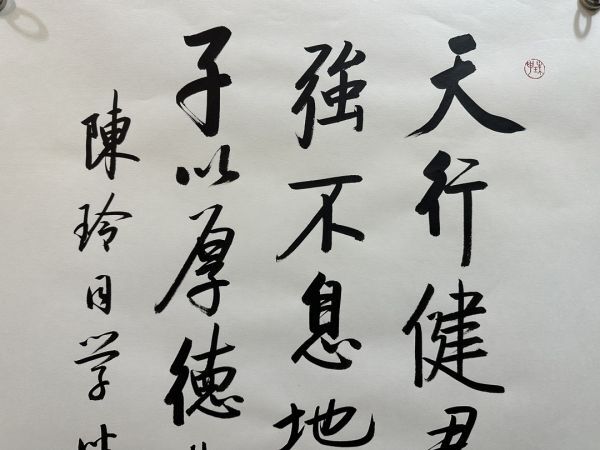 天行健君
強不息地
子以厚德
陳玲同学